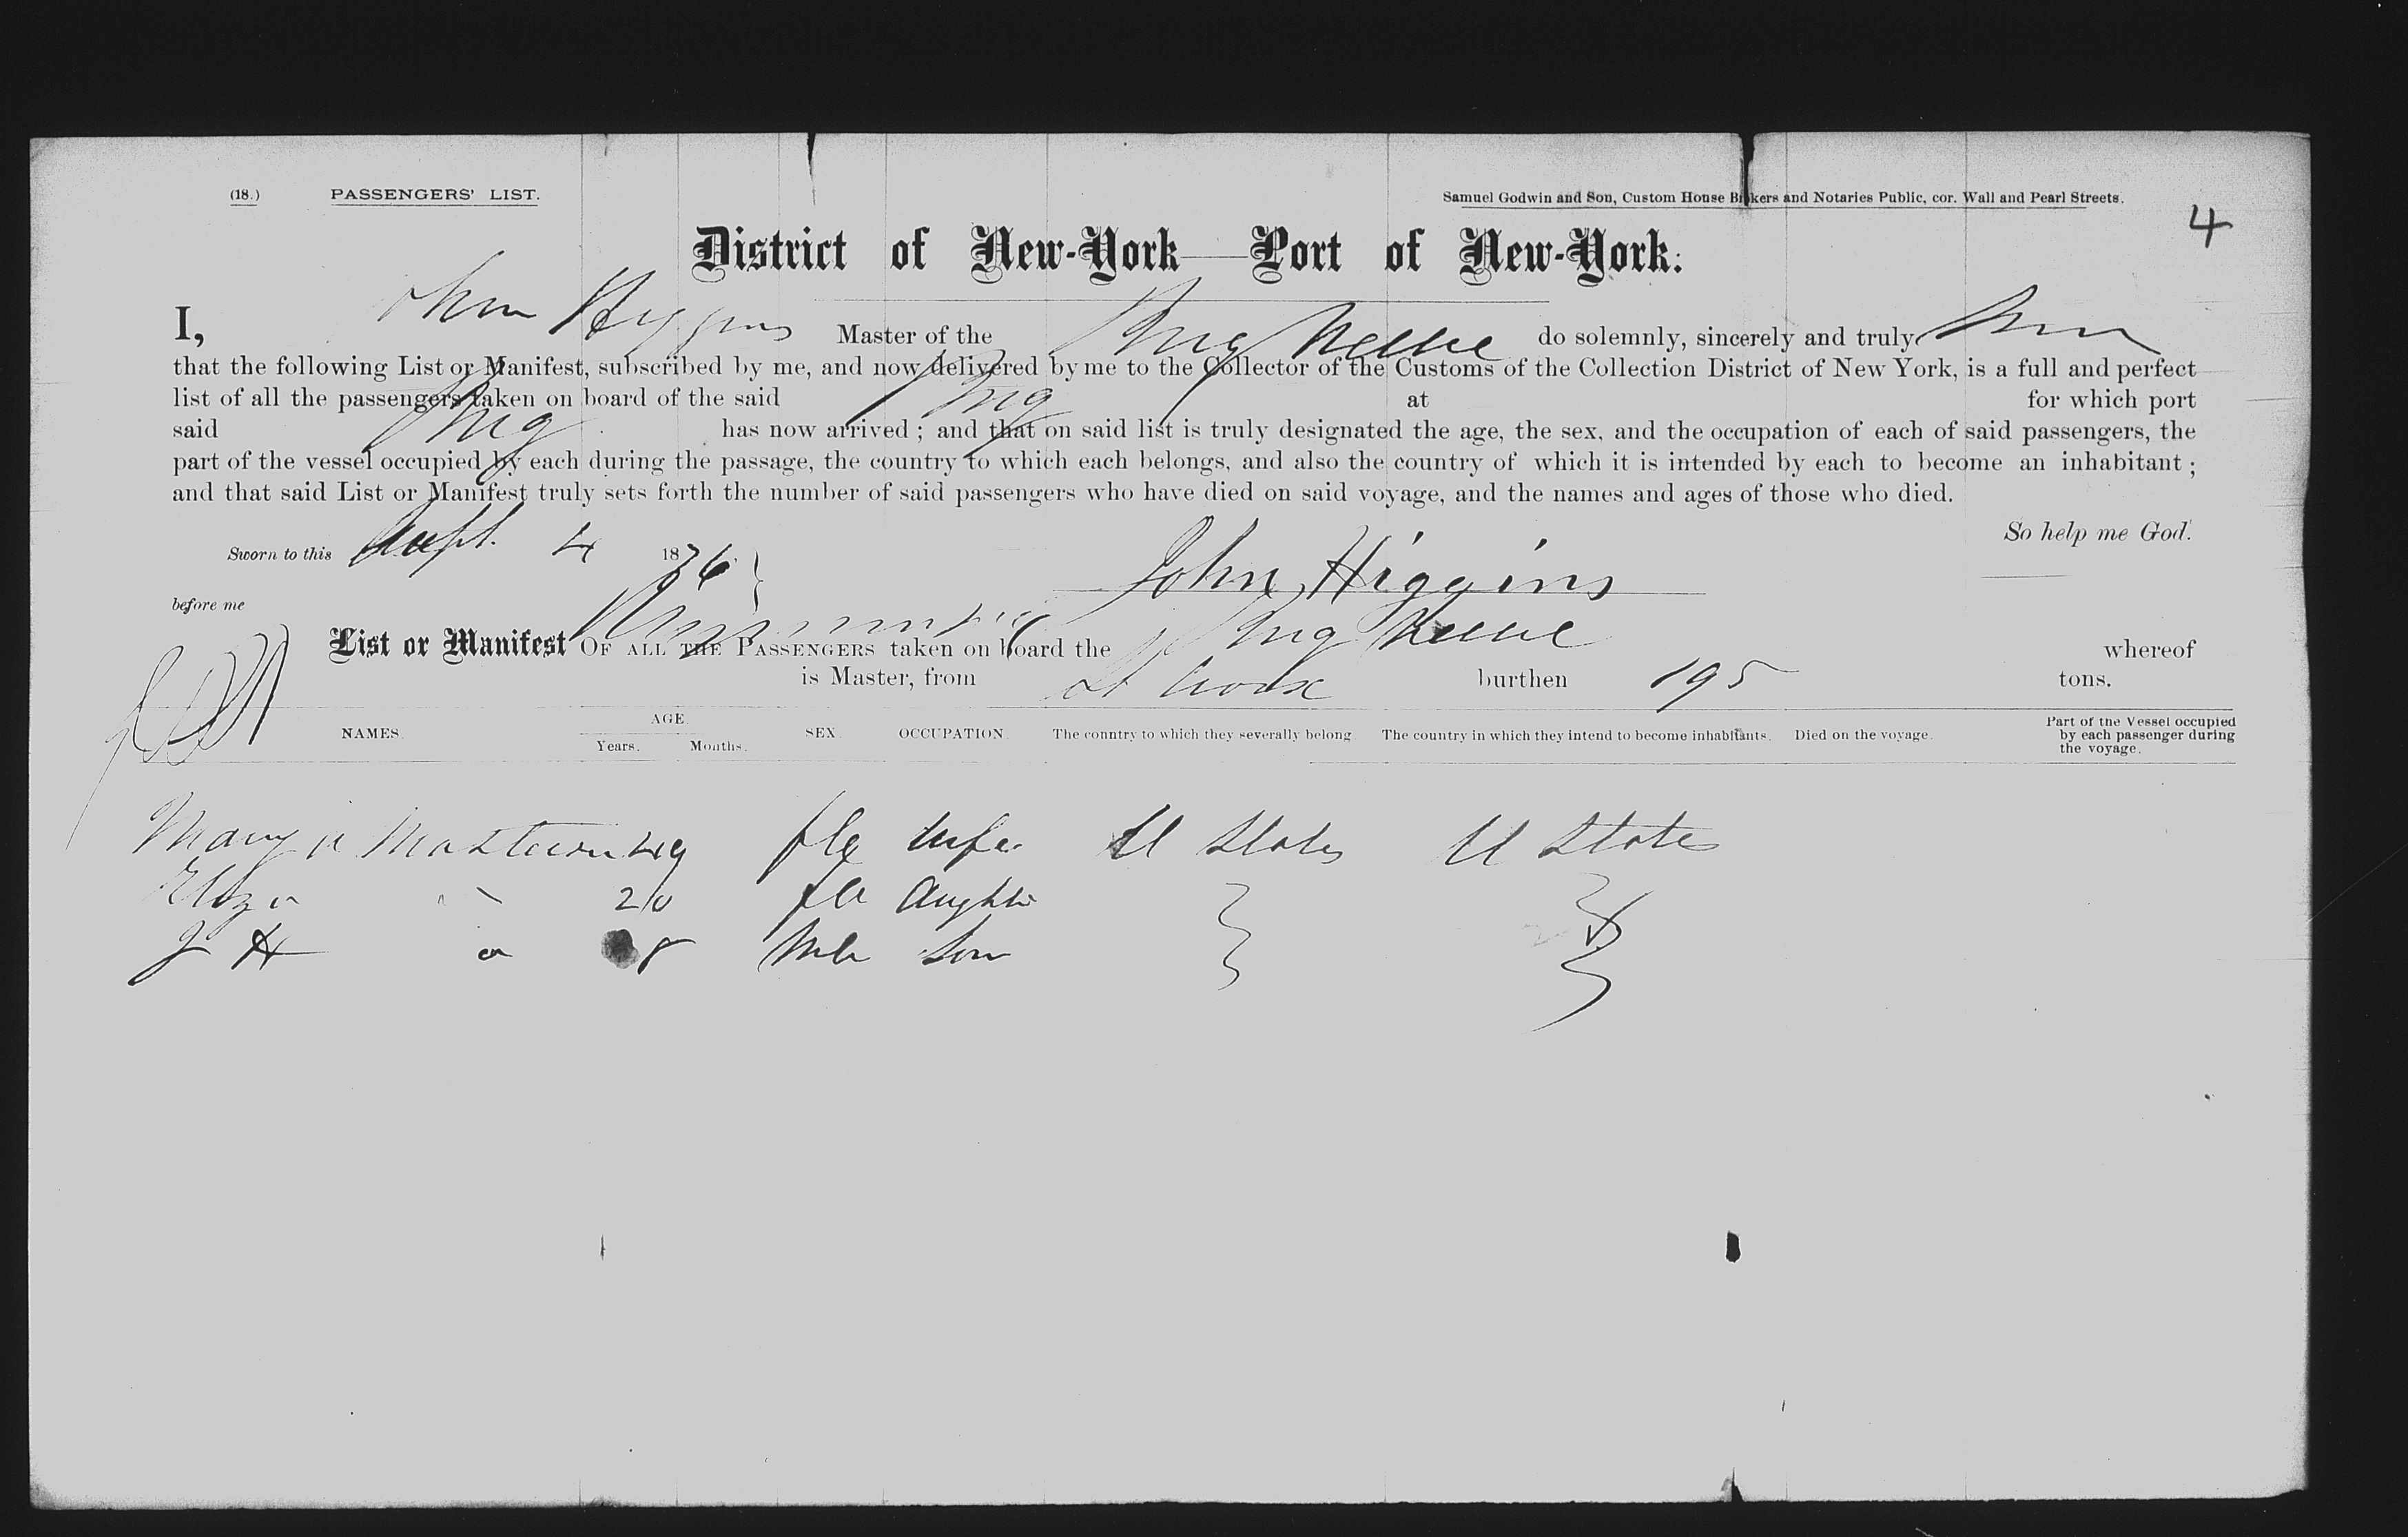 (18.) PASSENGERS' LIST. Samuel Godwin and Son, Custom House Brokers and Notaries Public, cor. Wall and Pearl Streets.
4
District of New-York—Port of New-York:
I, John Higgins Master of the Brig Nellie do solemnly, sincerely and truly
that the following List or Manifest, subscribed by me, and now delivered by me to the Collector of the Customs of the Collection District of New York, is a full and perfect
list of all the passengers taken on board of the said Brig at for which port
said Brig has now arrived; and that on said list is truly designated the age, the sex, and the occupation of each of said passengers, the
part of the vessel occupied by each during the passage, the country to which each belongs, and also the country of which it is intended by each to become an inhabitant;
and that said List or Manifest truly sets forth the number of said passengers who have died on said voyage, and the names and ages of those who died.
So help me God.
Sworn to this Sept. 4 1876
John Higgins
before me
List or Manifest OF ALL THE PASSENGERS taken on board the Brig Nellie whereof
is Master, from St Croix burthen 195 tons.
NAMES. AGE. Years. Months. SEX. OCCUPATION. The conntry to which they severally belong. The country in which they intend to become inhabitants. Died on the voyage. Part of the Vessel occupied by each passenger during the voyage.
Mary 49 fle wife U States U States
Eliza " 20 fle daughter
J H " 8 Mle Son